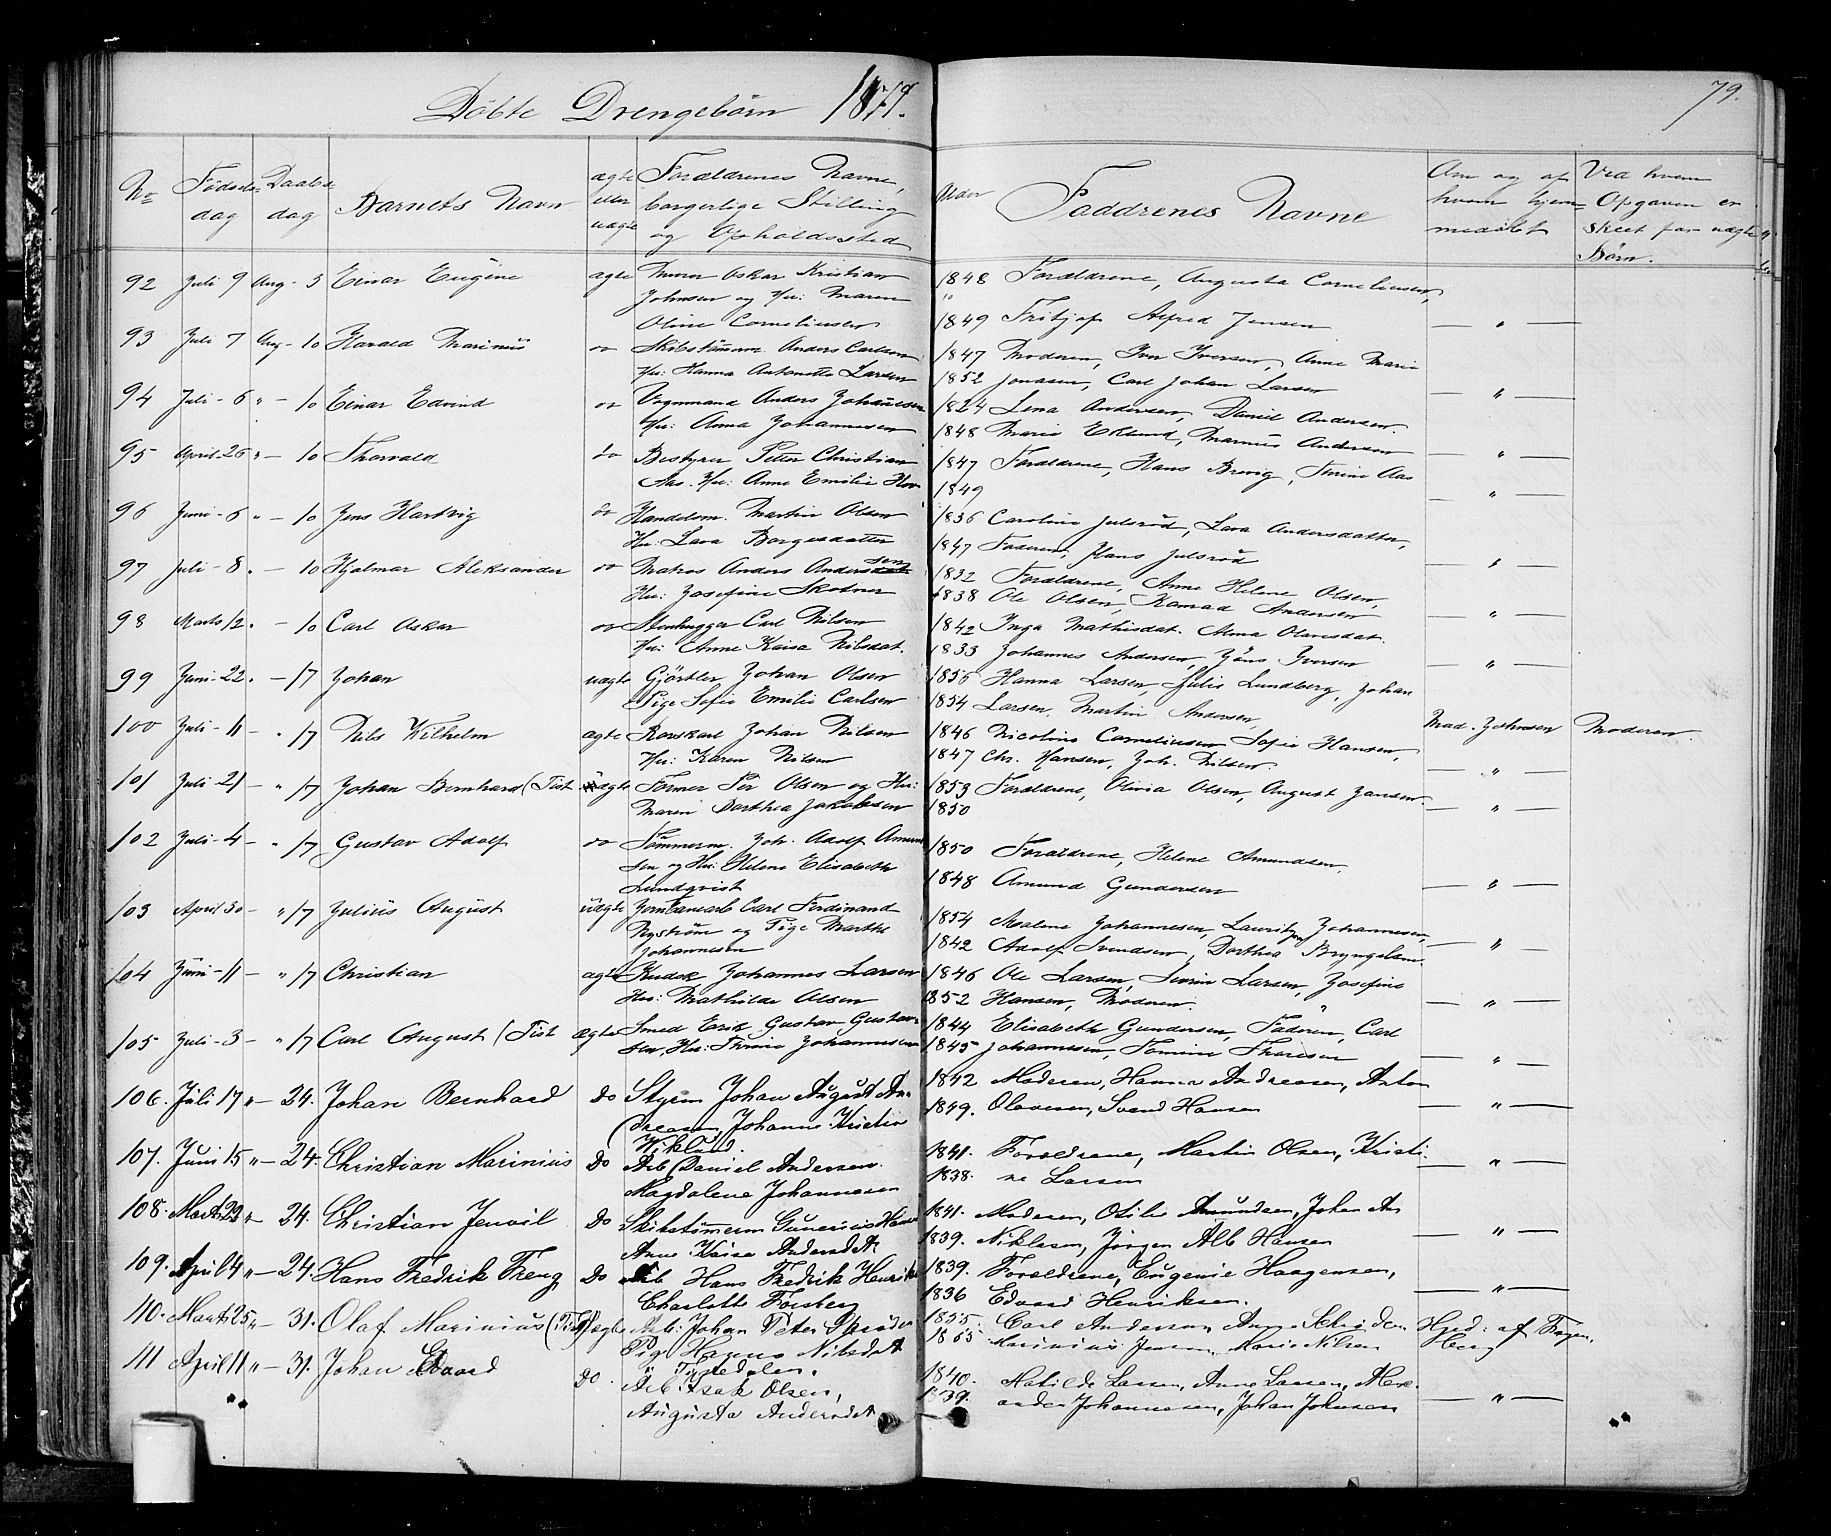 Döbte Drengebörn 1879.
79.
No
Födsels-dag
Daabsdag
Barnets Navn
ægte eller uægte
Forældrenes Navne, borgerlige Stilling og Opholdssted
Faddrenes Navne
Om og af hvem hjemmedöbt
Ved hvem Opgaven er skeet for uægte Börn.
92 Juli 9 Aug- 3 Einar Eugéne ægte Murer Oskar Kristian 1848 Forældrene, Augusta Corneliusen,
Johnsen og Hu: Maren
Oline Corneliusen 1849 Fritjof Alfred Jensen — " —
93 Juli 7 Aug- 10 Harald Marinus do Skibstömmerm. Anders Carlsen 1847 Moderen, Iver Iversen, Anne Marie
Hu: Hanna Antonette Larsen 1852 Jonasen, Carl Johan Larsen — " —
94 Juli - 6 " - 10 Einar Edvind do Vognmand Anders Johannesen 1824 Lena Andersen, Daniel Andersen.
Hu: Anna Johannesen 1848 Marie Eklund, Marnus Andersen — " —
95 April 26 " - 10 Thorvald do Bestyrer Petter Christian 1847 Forældrene, Hans Brevig, Thrine Aas
Aas. Hu: Anne Emilie Hov 1849 — " —
96 Juni - 6 " - 10 Jens Hartvig do Handelsm. Martin Olsen 1836 Caroline Julsröd, Lava Andersdatter,
Hu: Lava Borgesdatter 1847 Faderen, Hans Julsröd — " —
97 Juli - 8 . - 10 Hjalmar Aleksander do Matros Anders Andersen 1832 Forældrene, Anne Helene Olsen,
Hu: Josefine Skotner 1838 Ole Olsen, Konrad Andersen — " —
98 Marts 12 . - 10 Carl Oskar do Stenhugger Carl Nilsen 1842 Inga Mathisdat. Alma Olavesdat.
Hu: Anne Kaisa Nilsdat. 1833 Johannes Andersen, Jöns Iversen — " —
99 Juni - 22 . - 17 Johan uægte Gjörtler Johan Olsen 1856 Hanna Larsen, Julie Lundberg, Johan
Pige Sofie Emilie Carlsen 1854 Larsen, Martin Andersen, Mad. Johnsen Moderen.
100 Juli - 11 - " 17 Nils Wilhelm ægte Rorskarl Johan Nilsen 1846 Nicoline Corneliusen Sofie Hansen,
Hu: Karen Nilsen 1847 Chr. Hansen, Joh. Nilsen — " —
101 Juli - 21 - " 17 Johan Bernhard (Tist. ægte Former Per Olsen og Hu: 1853 Forældrene, Olivia Olsen, August Jansen.
Maren Dorthea Jakobsen 1850 — " —
102 Juli - 4 - " 17 Gustav Adolf do Tömmerm. Joh. Adolf Amund- 1850 Forældrene, Helene Amundsen,
sen og Hu: Helene Elisabeth
Lundqvist 1848 Amund Gundersen — " —
103 April 30 - " 17 Julius August uægte Carl Ferdinand 1854 Malene Johannesen, Lauritz Johannesen,
Nyström og Pige Marthe 1842 Adolf Svendsen, Dorthea Bryngelsen. — " —
Johannesen
104 Juni - 11 - " 17 Christian ægte Kudsk Johannes Larsen 1846 Ole Larsen, Severin Larsen, Josefine
Hu: Mathilde Olsen 1852 Hansen, Moderen. — " —
105 Juli - 3 - " 17 Carl August (Tist ægte Smed Erik Gustav Gustav- 1844 Elisabeth Gundersen, Faderen, Carl
sen, Hu: Thrine Johannesen 1845 Johannesen, Tomine Thoresen — " —
106. Juli 17 " - 24. Johan Bernhard Do Styrm Johan August An- 1842 Moderen, Hanna Andreasen, Anton
dreasen, Johanne Kristin 1849. Olavesen, Svend Hansen — " —
Wiklund.
107. Juni 15 " - 24. Christian Marinius Do Arb Daniel Andersen. 1841. Forældrene, Martin Olsen, Kristi-
Magdalene Johannesen 1838. ne Larsen — " —
108. Marts 29 " - 24. Christian Jenvil Do Skibstömmerm Gunerius Hansen 1841. Moderen, Otilie Amundsen, Johan An
Anne Kaisa Andersdt. 1839. Niklasen, Jörgen Alb Hansen — " —
109. April 4 " - 24. Hans Fredrik Frenz Do Arb Hans Fredrik Henriks 1839. Forældrene, Eugenie Haagensen,
Charlotte Forsberg 1836 Edvard Henriksen. — " —
110. Marts 25 " - 31. Olaf Marinius (Tist) uægte Arb: Johan Peter 1855. Carl Andersen, Anne Schröder Hjed: af Frøken
Pig: Nilsdt 1855. Marinius Jensen, Marie Nilsen Herg
Tistedalen.
111 April 11 " - 31. Johan Edvard Do. Arb: Isak Olsen, 1840. Matilde Larsen, Anne Larsen, Alex-
Augusta Andersdt 1839. ander Johannesen, Johan Johnsen — " —